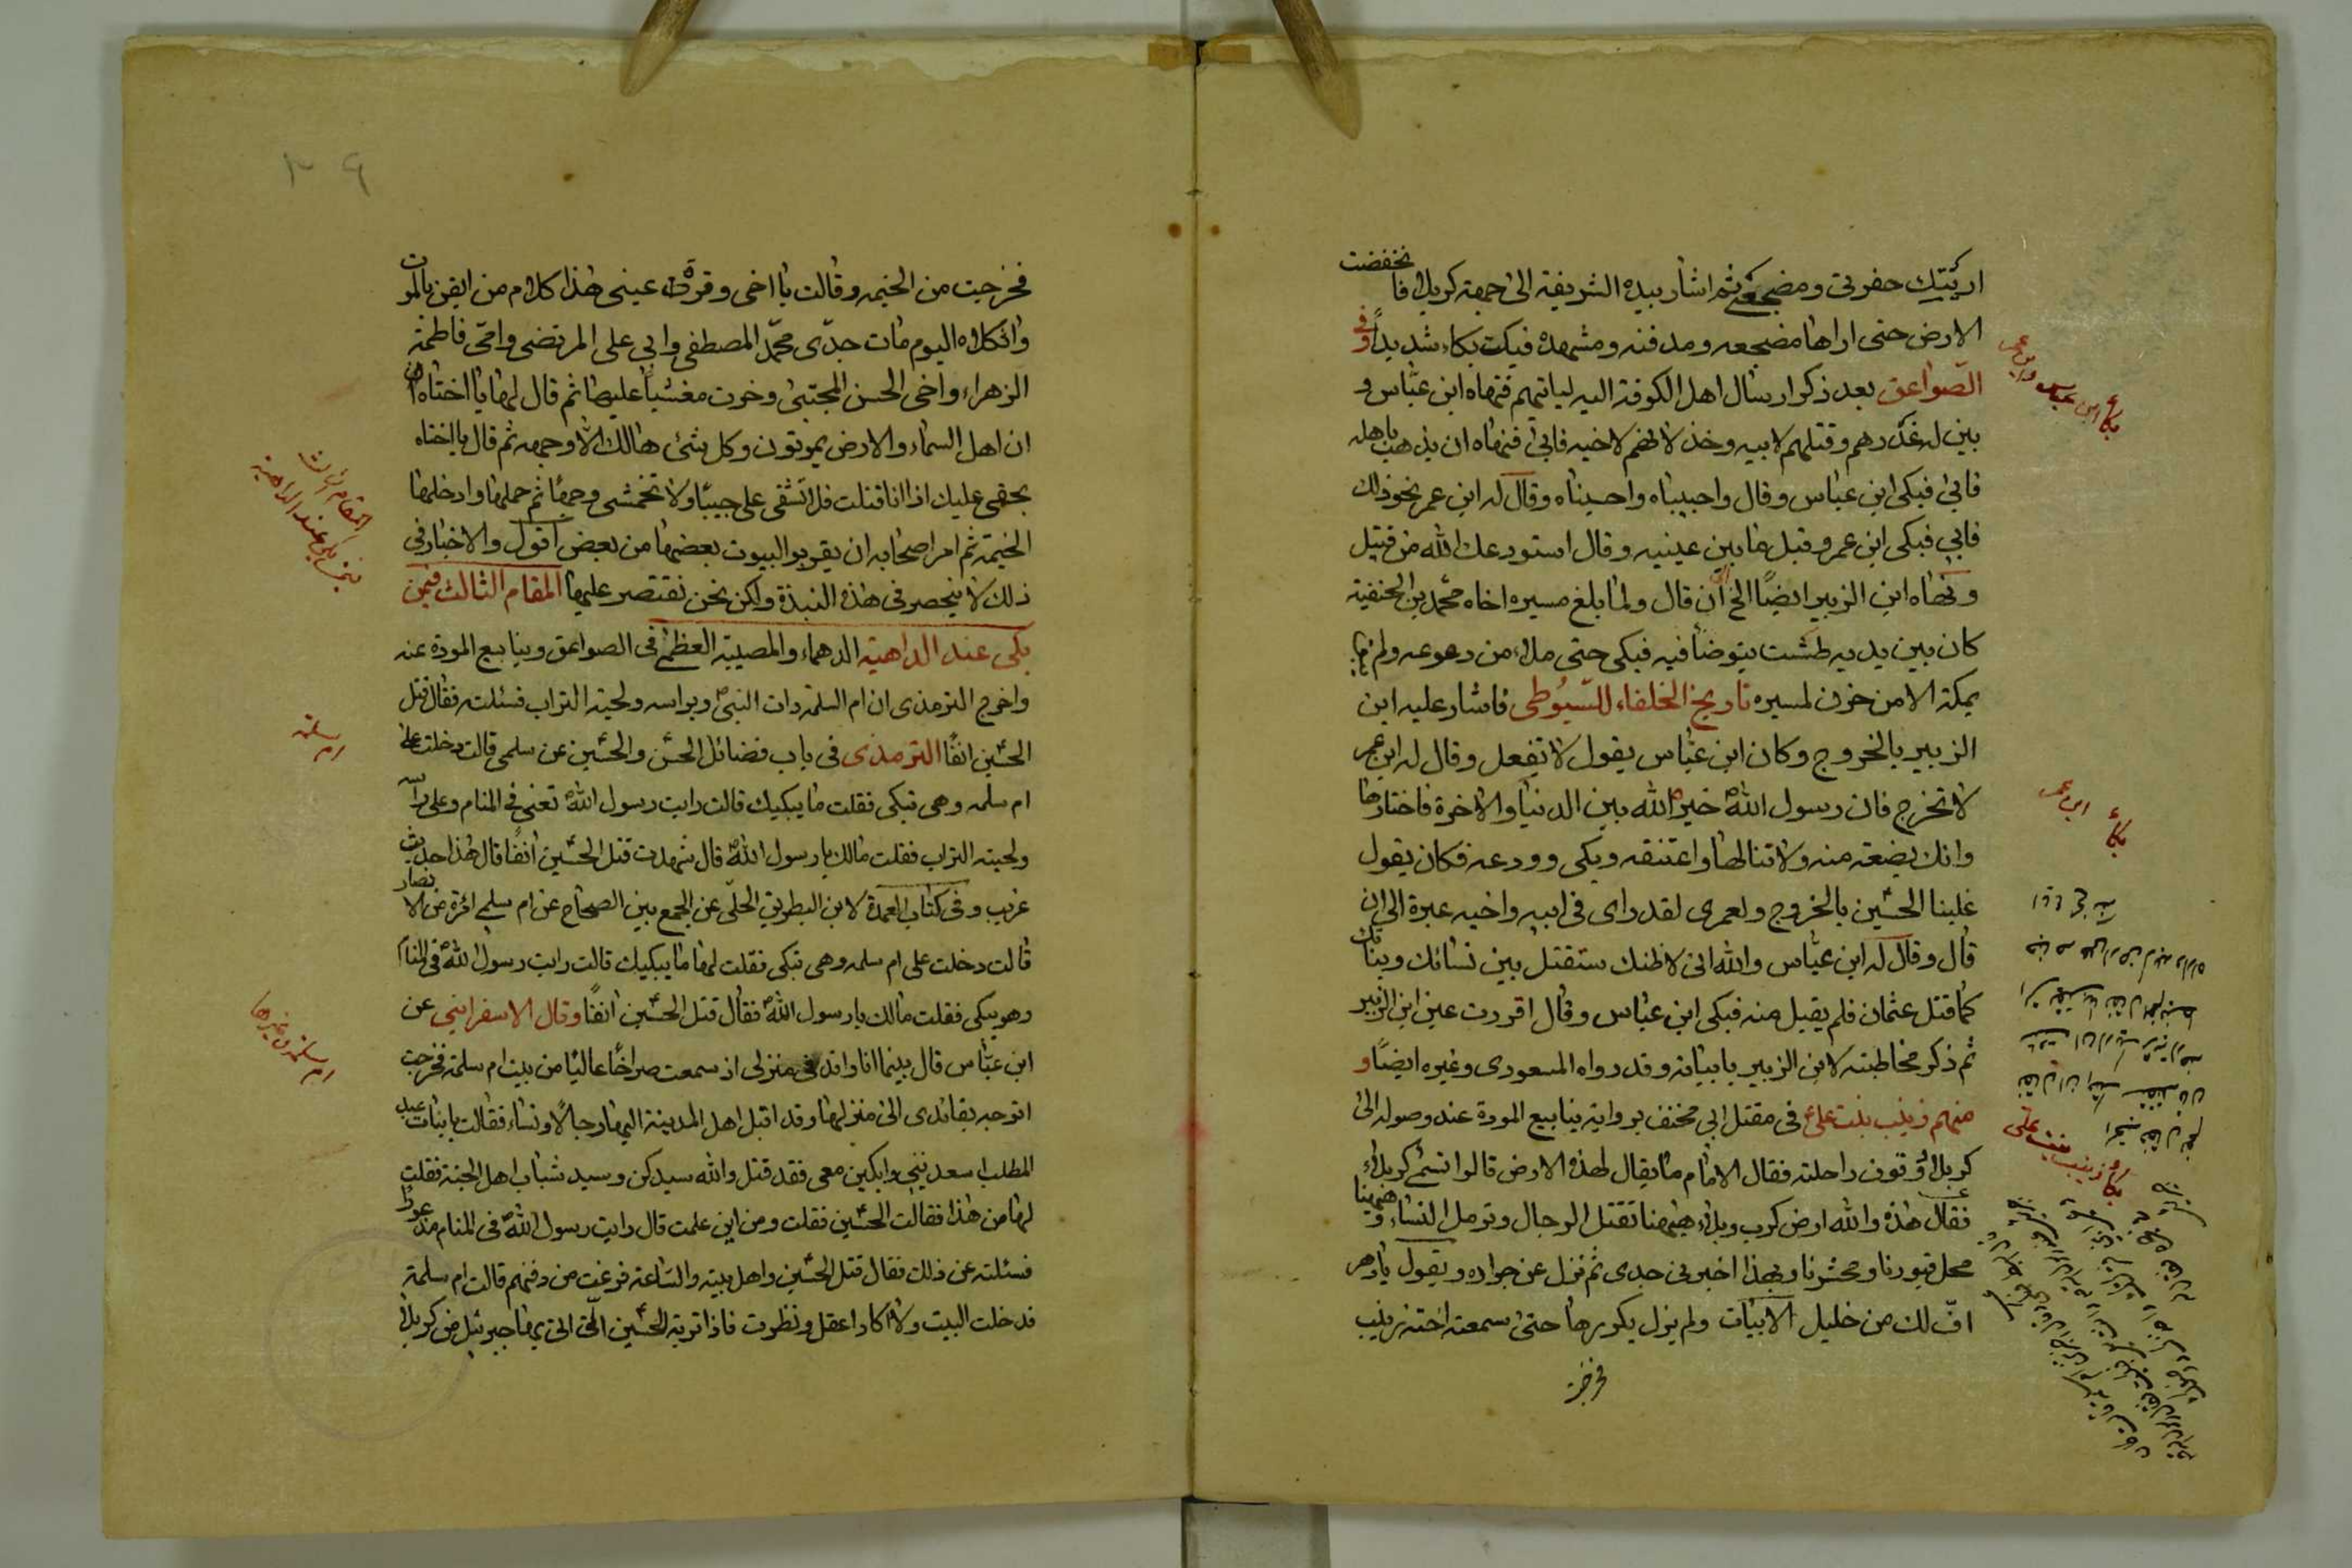 اريتك حفرتي ومضجعي ثم اشار بيده الشريفة الى جهة كربلا فانخفضت
الارض حتى اراها مضجعه ومدفنه ومشهده فبكت بكاء شديداً وفى
الصّواعق بعد ذكر ارسال اهل الكوفة اليه لياتيهم فنهاه ابن عبّاس و
بين له غدرهم وقتلهم لابيه وخذلانهم لاخيه فابى فنهاه ان يذهب باهله
فابى فبكى ابن عباس وقال واحبيباه واحسيناه وقال له ابن عمر نحو ذلك
فابى فبكى ابن عمر وقبل ما بين عينيه وقال استودعك الله من قتيل
ونهاه ابن الزبير ايضًا الخ ان قال ولما بلغ مسيره اخاه محمد بن الحنفية
كان بين يديه طشت يتوضا فيه فبكى حتى ملاء من دموعه ولم يبق
بمكة الا من حزن لمسيره تاريخ الخلفاء للسّيوطى فاشار عليه ابن
الزبير بالخروج وكان ابن عبّاس يقول لا تفعل وقال له ابن عمر
لا تخرج فان رسول الله خيره الله بين الدنيا والاخرة فاختارها
وانك بضعة منه ولا تنالها واعتنقه وبكى وودعه فكان يقول
غلبنا الحسين بالخروج ولعمرى لقد راى فى ابيه واخيه عبرة الى ان
قال وقال له ابن عبّاس والله انى لاظنك ستقتل بين نسائك وبناتك
كما قتل عثمان فلم يقبل منه فبكى ابن عباس وقال اقررت عين ابن الزبير
ثم ذكر مخاطبته لابن الزبير بابياته وقد رواه المسعودى وغيره ايضًا و
منهم زينب بنت على فى مقتل ابى مخنف برواية ينابيع المودة عند وصوله الى
كربلا وقوف راحلته فقال الامام ما يقال لهذه الارض قالوا تسمى كربلاء
فقال هذه والله ارض كرب وبلاء هيهنا تقتل الرجال وترمل النساء وهيهنا
محل قبورنا ومحشرنا وبهذا اخبرنى جدى ثم نزل عن جواده ويقول يا دهر
افّ لك من خليل الابيات ولم يزل يكررها حتى سمعته اخته زينب
فخرجت
بكاء ابن عباس وابن عمر
بكاء ابن عمر
بكاء زينب بنت على
فخرجت من الخيمه وقالت يا اخى وقرة عينى هذا كلام من ايقن بالموت
واثكلاه اليوم مات جدّى محمّد المصطفى وابى على المرتضى وامّى فاطمة
الزهراء واخى الحسن المجتبى وخرت مغشياً عليها ثم قال لها يا اختاه
ان اهل السماء والارض يموتون وكل شئ هالك الا وجهه ثم قال يا اختاه
بحقى عليك اذا انا قتلت فلا تشقى على جيبًا ولا تخمشى وجهًا ثم حملها وادخلها
الخيمة ثم امر اصحابه ان يقربوا البيوت بعضها من بعض اقول والاخبار فى
ذلك لا ينحصر فى هذه النبذة ولكن نحن نقتصر عليها المقام الثالث فيمن
بكى عند الداهية الدهماء والمصيبة العظمى فى الصواعق وينابيع المودة عنه
واخرج الترمذى ان ام السلمة رات النبى وبراسه ولحيته التراب فسئلته فقال قتل
الحسين انفًا الترمذى فى باب فضائل الحسن والحسين عن سلمى قالت دخلت على
ام سلمه وهى تبكى فقلت ما يبكيك قالت رايت رسول الله تعنى فى المنام وعلى راسه
ولحيته التراب فقلت مالك يا رسول الله قال شهدت قتل الحسين انفًا قال هذا حديث
غريب وفى كتاب العمدة لابن البطريق الحلّى عن الجمع بين الصحاح عن ام سلمى امرة من الانصار
قالت دخلت على ام سلمه وهى تبكى فقلت لها ما يبكيك قالت رايت رسول الله فى المنام
وهو يبكى فقلت مالك يا رسول الله فقال قتل الحسين انفًا وقال الاسفراينى عن
ابن عبّاس قال بينما انا راقد فى منزلى اذ سمعت صراخًا عاليًا من بيت ام سلمة فخرجت
اتوجه بقائدى الى منزلها وقد اقبل اهل المدينة اليها رجالًا ونساء فقالت يا بنات عبد
المطلب اسعدننى وابكين معى فقد قتل والله سيدكن وسيد شباب اهل الجنة فقلت
لها من هذا فقالت الحسين فقلت ومن اين علمت قال رايت رسول الله فى المنام مذعورًا
فسئلته عن ذلك فقال قتل الحسين واهل بيته والساعة فرغت من دفنهم قالت ام سلمة
فدخلت البيت ولا اكاد اعقل ونظرت فاذا تربة الحسين الّتى اتى بها جبرئيل من كربلا
المقام الثالث
فيمن بكى عند الداهية
ام سلمة
ام سلمة وغيرها